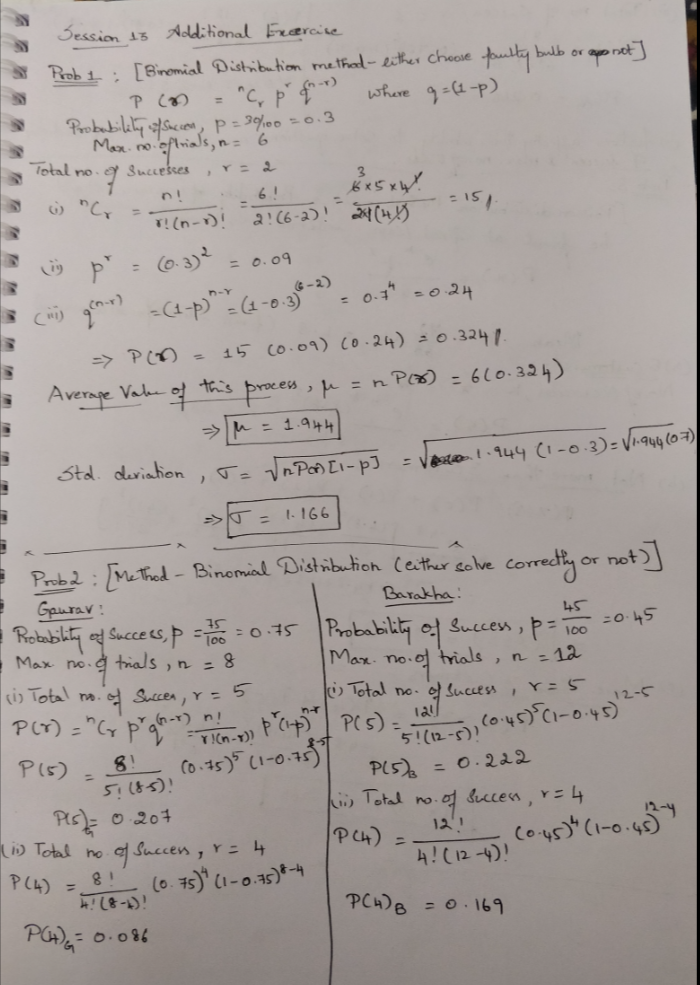 Session 13 Additional Excercise
Prob 1 : [Binomial Distribution method - either choose faulty bulb or not]
P(r) = ⁿCᵣ pʳ q⁽ⁿ⁻ʳ⁾ where q = (1-p)
Probability of Success, p = 30/100 = 0.3
Max. no. of trials, n = 6
Total no. of Successes, r = 2
(i) ⁿCᵣ = n!/r!(n-r)! = 6!/2!(6-2)! = 3 6×5×4!/2!(4!) = 15
(ii) pʳ = (0.3)² = 0.09
(iii) q⁽ⁿ⁻ʳ⁾ = (1-p)ⁿ⁻ʳ = (1-0.3)⁽⁶⁻²⁾ = 0.7⁴ = 0.24
=> P(r) = 15 (0.09) (0.24) = 0.324
Average Value of this process, μ = n P(r) = 6(0.324)
=> μ = 1.944
Std. deviation, σ = √nP(r)[1-p] = √1.944 (1-0.3) = √1.944(0.7)
=> σ = 1.166
Prob 2 : [Method - Binomial Distribution (either solve correctly or not)]
Gaurav :
Probability of Success, p = 75/100 = 0.75
Max no. of trials, n = 8
(i) Total no. of Succes, r = 5
P(r) = ⁿCᵣ pʳ q⁽ⁿ⁻ʳ⁾ = n!/r!(n-r)! pʳ(1-p)ⁿ⁻ʳ
P(5) = 8!/5!(8-5)! (0.75)⁵ (1-0.75)⁸⁻⁵
P(5)G = 0.207
(ii) Total no. of Succes, r = 4
P(4) = 8!/4!(8-4)! (0.75)⁴ (1-0.75)⁸⁻⁴
P(4)G = 0.086
Barakha :
Probability of Success, p = 45/100 = 0.45
Max. no. of trials, n = 12
(i) Total no. of Success, r = 5
P(5) = 12!/5!(12-5)! (0.45)⁵ (1-0.45)¹²⁻⁵
P(5)B = 0.222
(ii) Total no. of Success, r = 4
P(4) = 12!/4!(12-4)! (0.45)⁴ (1-0.45)¹²⁻⁴
P(4)B = 0.169